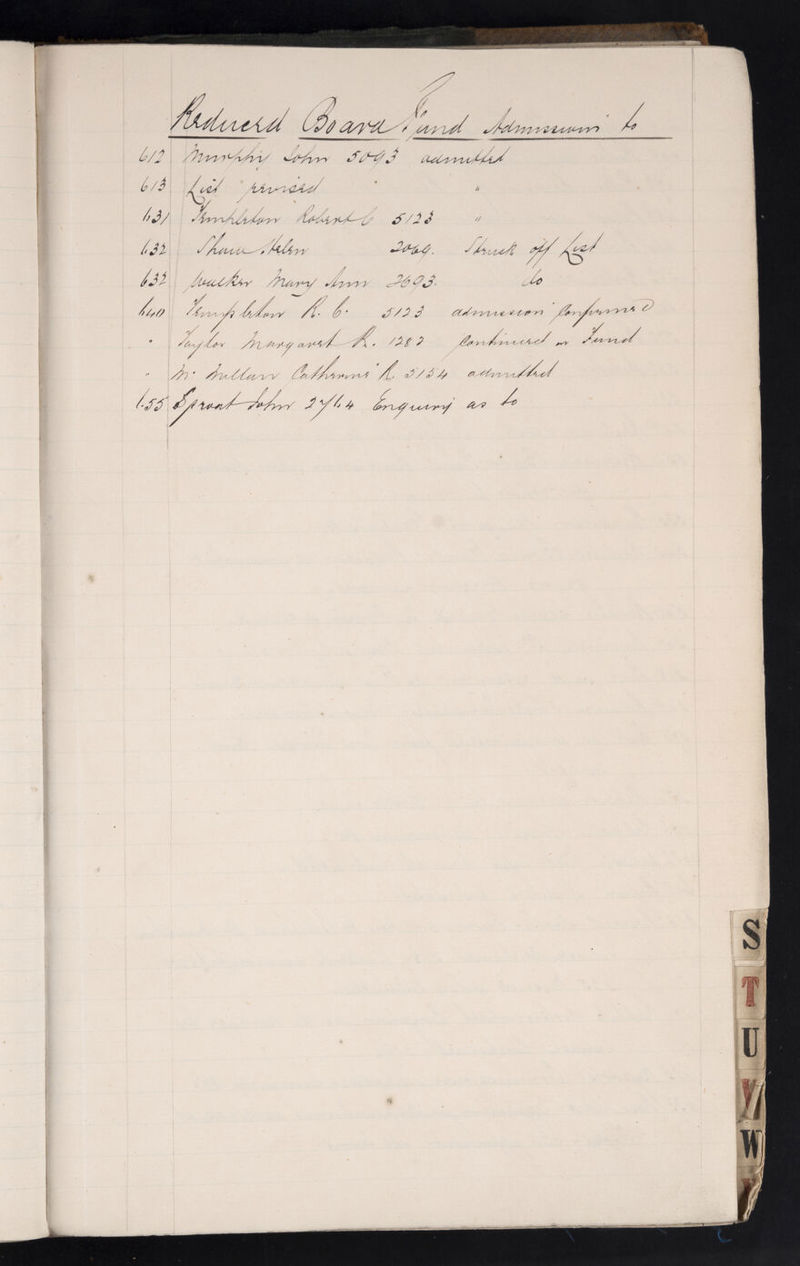 Reduced Board Fund Admission to
612 Murphy John 5093 admitted
613 List revised "
631 Templeton Robert C 5123 "
632 Shaw Helen 2069. Struck off List
632 Walker Mary Ann 2693. do
640 Templeton R. C. 5123 admission Confirmed
" Taylor Margaret R. 1282 Continued on Fund
" Mc Millan Catherine R 5154 admitted
655 Sproat John Enquiry as to
S
T
U
V
W